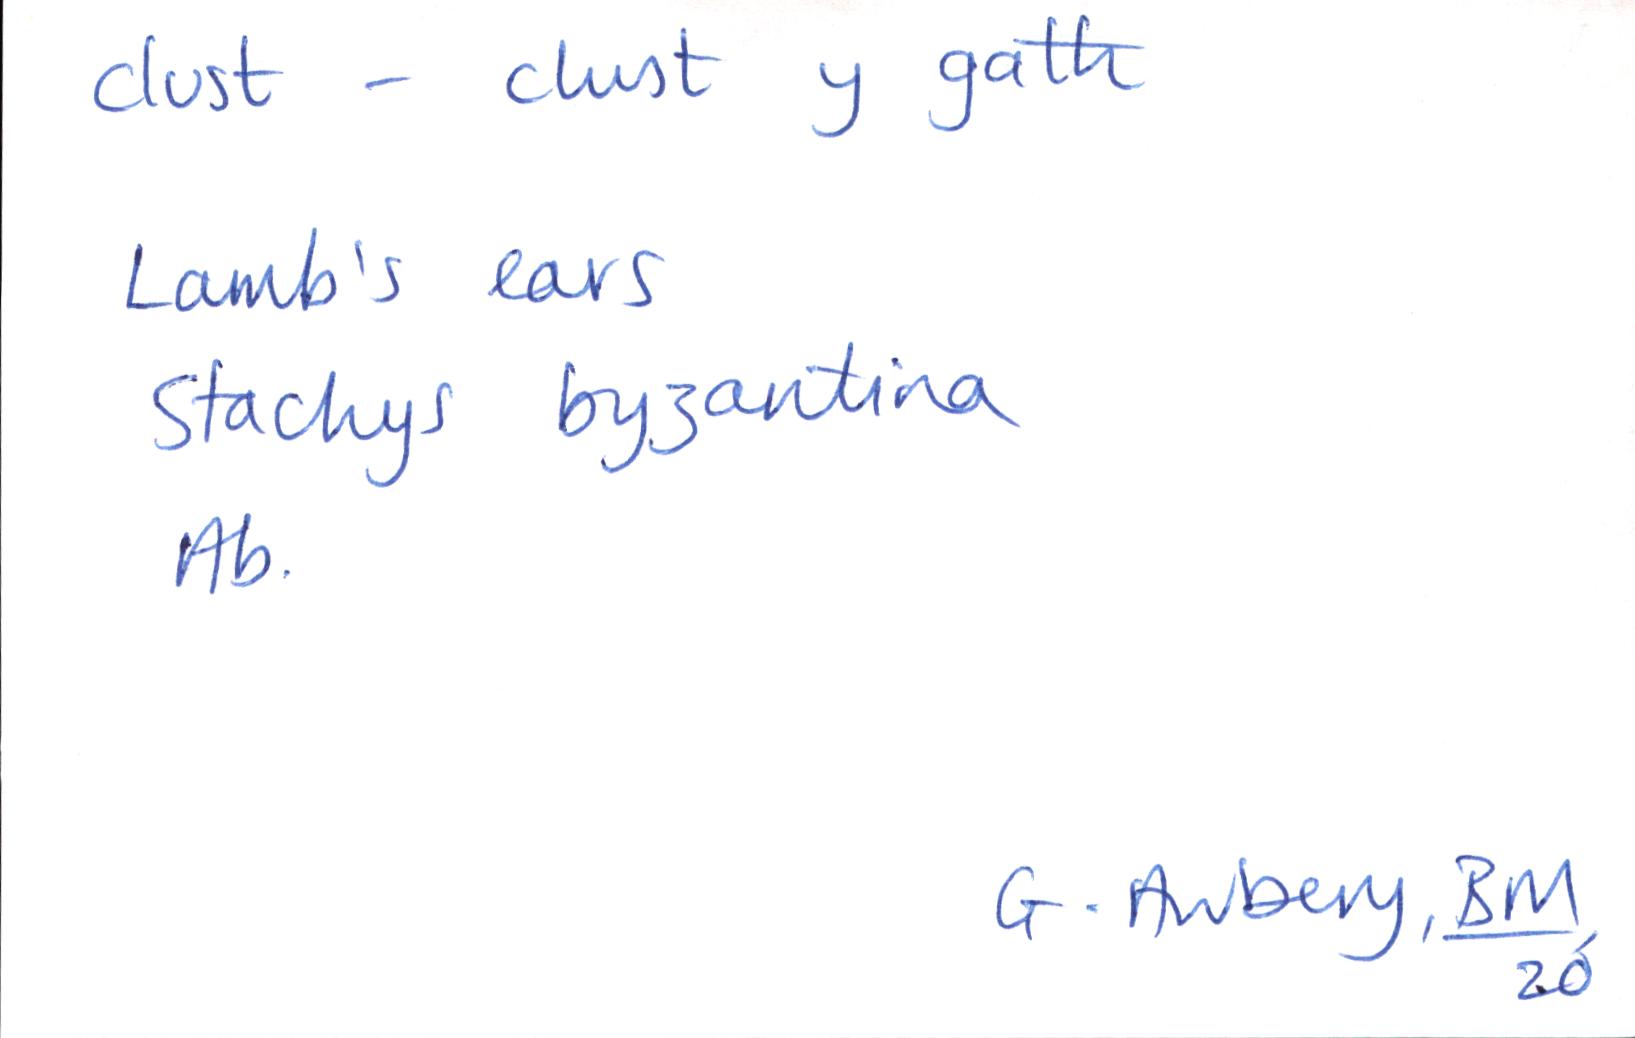 clust - clust y gath
Lamb's ears
Stachys byzantina
Ab.
G. Awbery, BM
20